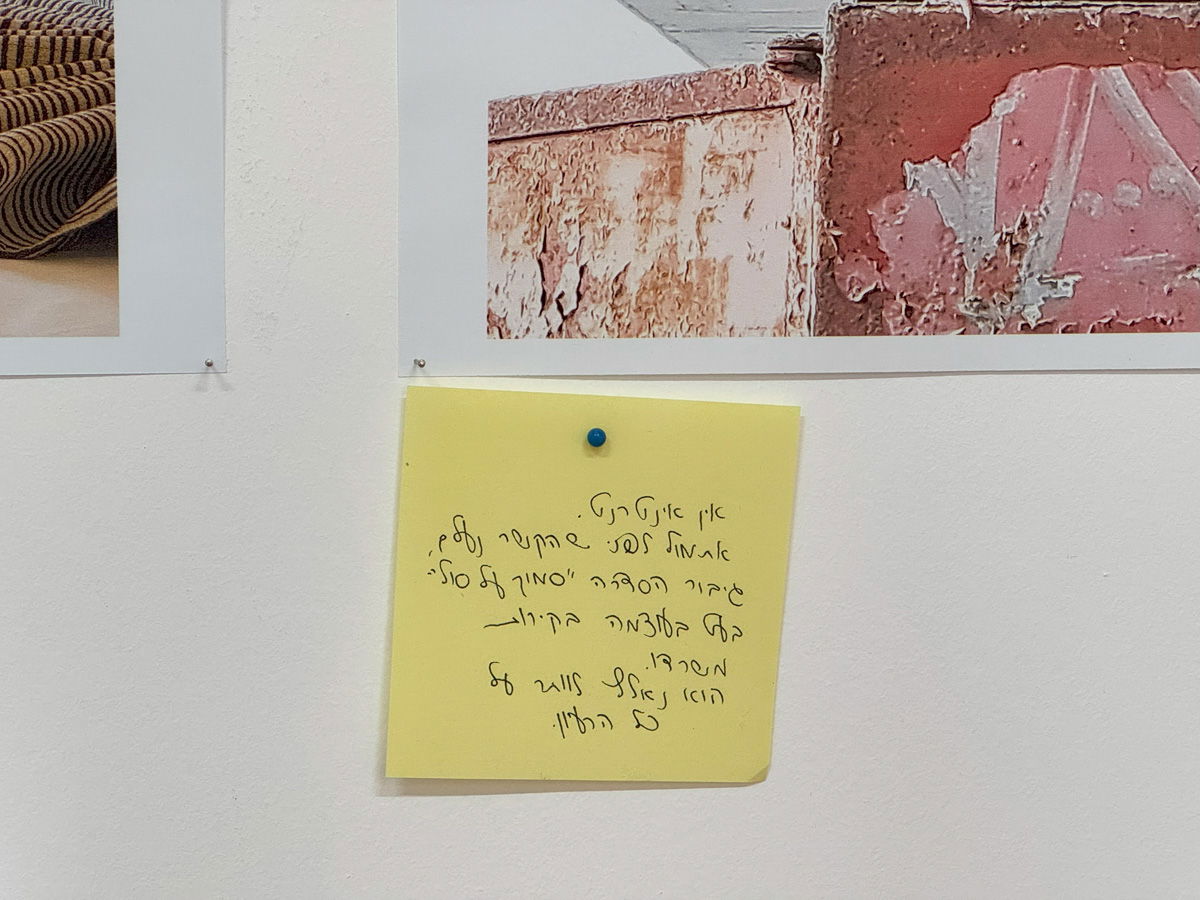 אין אינטרנט.
אתמול לפני שהקשר נעלם,
גיבור הסדרה "סמוך על סול"
בעט בעוצמה בקירות
משרדו.
הוא נאלץ לוותר על
כל הרעיון.